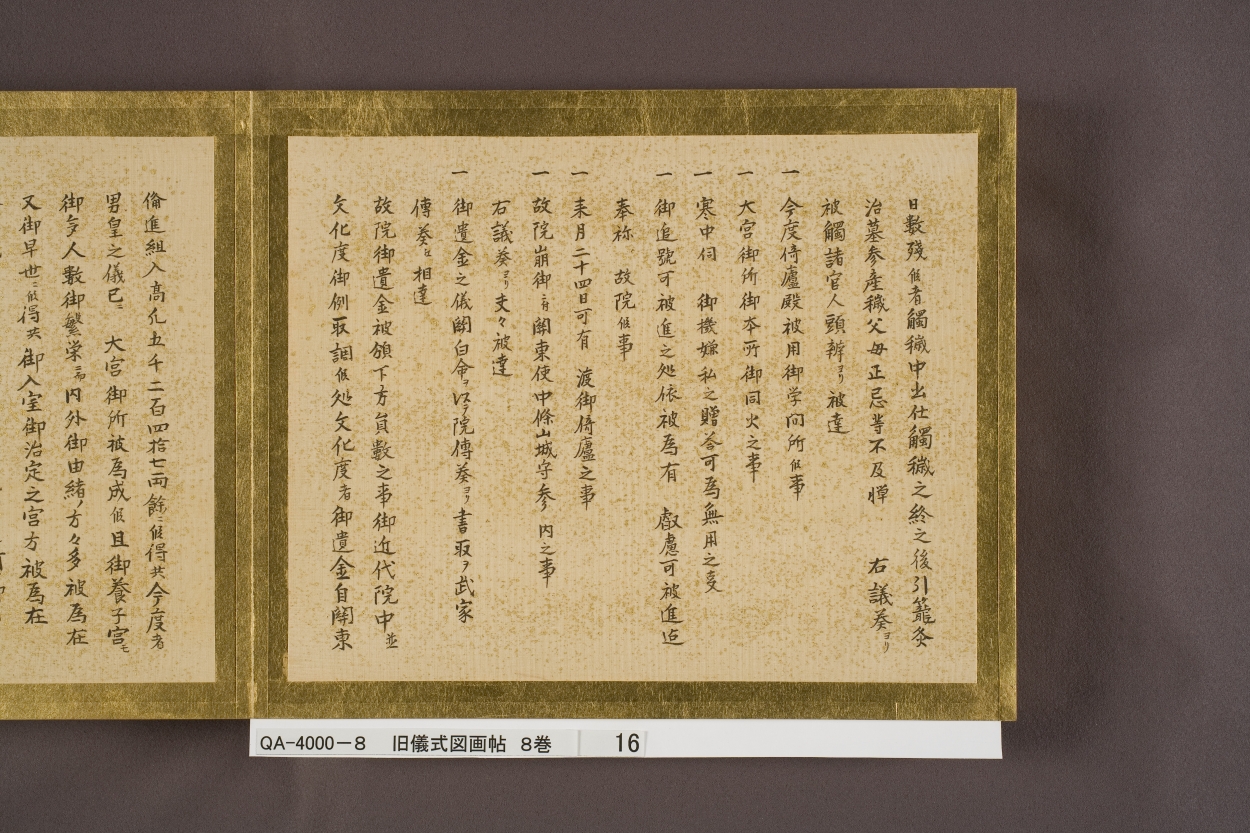 日数残候者觸穢中出仕觸穢之終之後引籠灸
治墓参産穢父母正忌等不及憚　右議奏ヨリ
被觸諸官人頭辨ヨリ被達
一 今度倚廬殿被用御学問所候事
一 大宮御所御本所御同火之事
一 寒中伺　御機嫌私之贈答可為無用之事
一 御追號可被進之処依被為有　叡慮可被進迄
奉称　故院候事
一 来月二十四日可有　渡御倚廬之事
一 故院崩御ニ付関東使中條山城守参　内之事
右議奏ヨリ夫々被達
一 御遺金之儀関白命ヲ以テ院傳奏ヨリ書取ヲ武家
傳奏江相達
故院御遺金被頒下方員數之事御近代院中並
文化度御例取調候処文化度者御遺金自関東
備進組入高凡五千二百四拾七両餘ニ候得共今度者
男皇之儀已ニ　大宮御所被為成候且御養子宮モ
御多人數御繁栄ニ而内外御由緒ノ方々多被為在
又御早世ニ候得共御入室御治定之宮方被為在
QA-4000-8　旧儀式図画帖　8巻　16